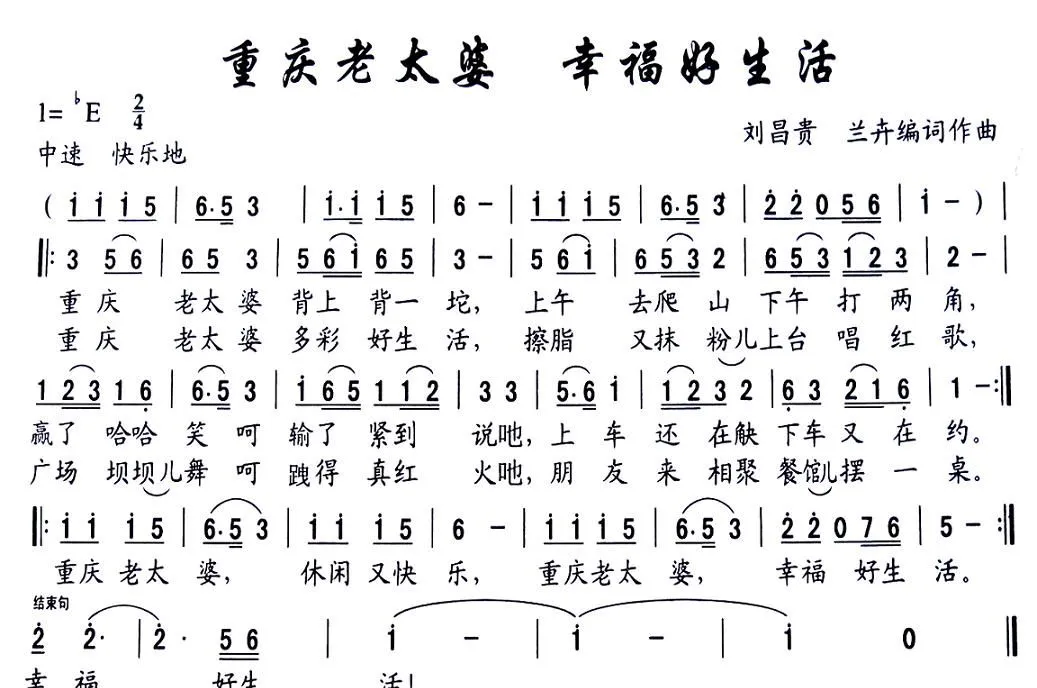 重庆老太婆 幸福好生活
1=♭E 2/4
刘昌贵 兰卉编词作曲
中速 快乐地
( i i i 5 | 6· 5 3 | i· i i 5 | 6 - | i i i 5 | 6· 5 3 | 2̇ 2̇ 0 5 6 | i - ) |
‖: 3 5 6 | 6 5 3 | 5 6 i 6 5 | 3 - | 5 6 i | 6 5 3 2 | 6 5 3 1 2 3 | 2 - |
重庆 老太婆 背上 背一 坨, 上午 去爬 山 下午 打 两 角,
重庆 老太婆 多彩 好生 活, 擦脂 又抹 粉儿上台 唱 红 歌,
1 2 3 1 6̣ | 6· 5 3 | i 6 5 1 1 2 | 3 3 | 5· 6 i | 1 2 3 2 | 6̣ 3 2 1 6̣ | 1 - :‖
赢了 哈哈 笑 呵 输了 紧到 说吔, 上 车 还 在觖 下车 又 在 约。
广场 坝坝儿舞 呵 跩得 真红 火吔, 朋 友 来 相聚 餐馆儿摆 一 桌。
‖: i i i 5 | 6· 5 3 | i i i 5 | 6 - | i i i 5 | 6· 5 3 | 2̇ 2̇ 0 7 6 | 5 - :‖
重庆 老太 婆, 休闲 又快 乐, 重庆老太 婆, 幸福 好生 活。
结束句
2̇ 2̇· | 2̇· 5 6 | i - | i - | i 0 ‖
幸 福 好生 活!